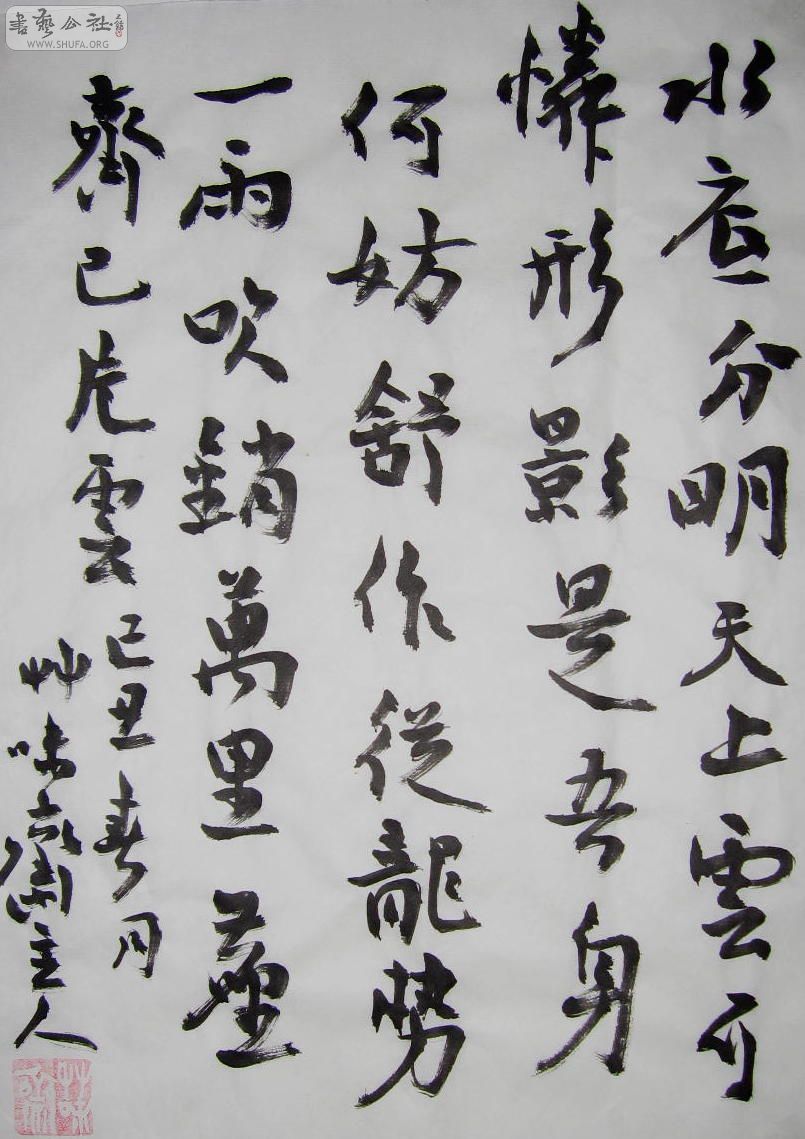 水底分明天上雲可
憐形影是吾身
何妨舒作從龍勢
一雨吹銷萬里塵
齊己片雲
己丑春月
艸味齋主人
書藝公社
WWW.SHUFA.ORG